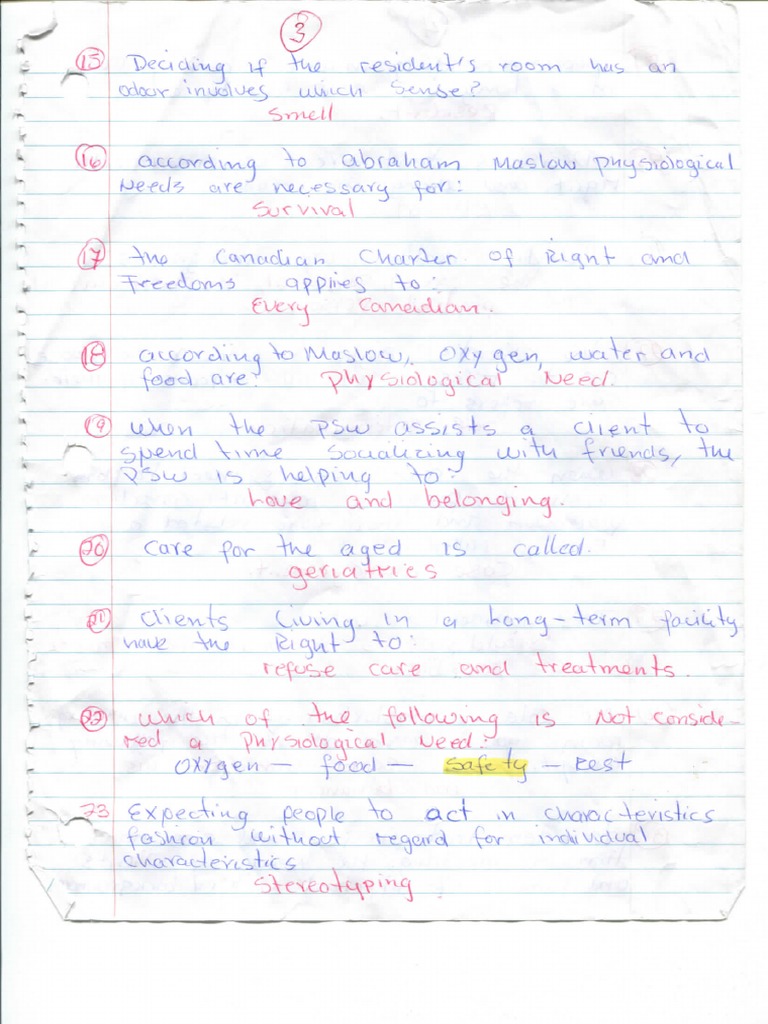 3
15 Deciding if the resident's room has an
odour involves which sense?
Smell
16 according to abraham Maslow physiological
Needs are necessary for:
Survival
17 the Canadian Charter of Right and
Freedoms applies to:
Every Canadian.
18 according to Maslow, oxygen, water and
food are: Physiological Need.
19 when the PSW assists a client to
spend time socializing with friends, the
PSW is helping to:
Love and belonging.
20 Care for the aged is called.
geriatrics
21 Clients Living in a Long-term facility
have the Right to:
refuse care and treatments.
22 which of the following is Not conside-
red a physiological Need:
oxygen - food - safety - Rest
23 Expecting people to act in characteristics
fashion without regard for individual
characteristics
Stereotyping